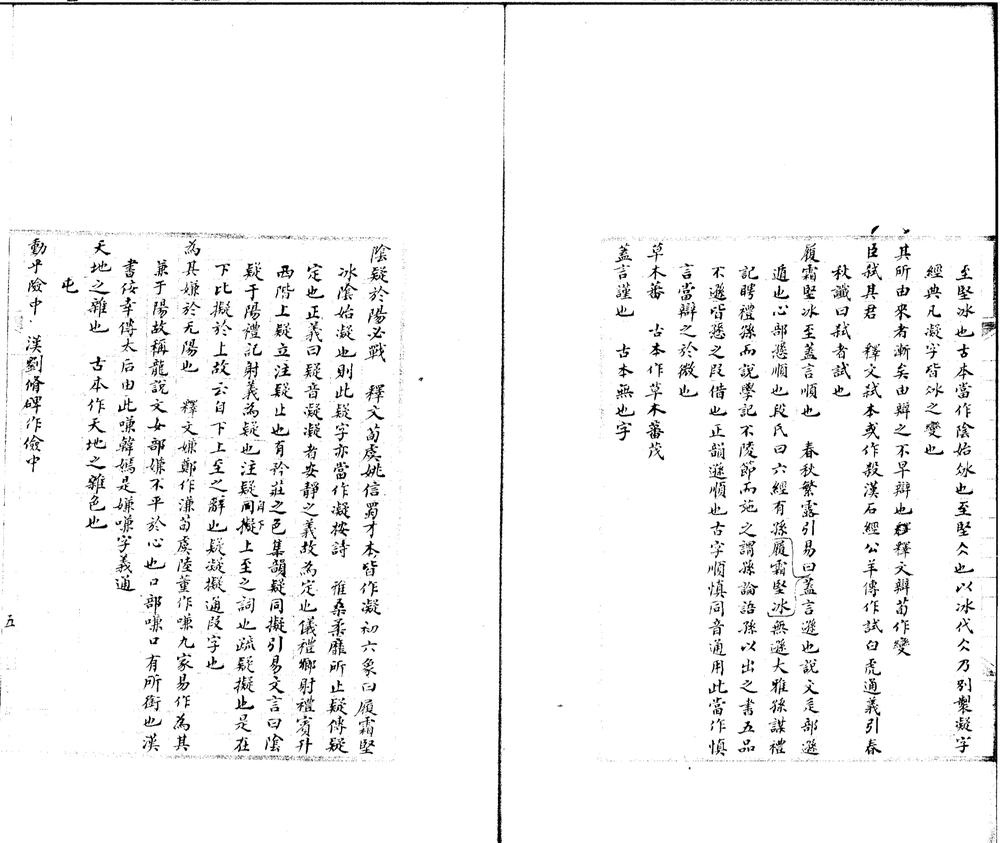 至堅冰也古本當作陰始冰也至堅仌也以冰代仌乃別製凝字
經典凡凝字皆冰之變也
其所由來者漸矣由辯之不早辯也釋文辯荀作變
臣弒其君　釋文弒本或作殺漢石經公羊傳作試白虎通義引春
秋讖曰弒者試也
履霜堅冰至蓋言順也　春秋繁露引易曰履霜堅冰蓋言遜也說文辵部遜
遁也心部愻順也段氏曰六經有孫無遜大雅孫謀禮
記聘禮孫而說學記不陵節而施之謂孫論語孫以出之書五品
不遜皆愻之叚借也正韻遜順也古字順慎同音通用此當作慎
言當辯之於微也
草木蕃　古本作草木蕃茂
蓋言謹也　古本無也字
陰疑於陽必戰　釋文荀虞姚信蜀才本皆作凝初六象曰履霜堅
冰陰始凝也則此疑字亦當作凝按詩　雅桑柔靡所止疑傳疑
定也正義曰疑音凝凝者安靜之義故為定也儀禮鄉射禮賓升
西階上疑立注疑止也有矜莊之色集韻疑同擬引易文言曰陰
疑于陽禮記射義為疑也注疑同擬自下上至之詞也疏疑擬也是在
下比擬於上故云自下上至之辭也疑凝擬通叚字也
為其嫌於无陽也　釋文嫌鄭作溓荀虞陸董作嗛九家易作為其
兼于陽故稱龍說文女部嫌不平於心也口部嗛口有所銜也漢
書佞幸傳太后由此嗛韓嫣是嫌嗛字義通
天地之雜也　古本作天地之雜色也
屯
動乎險中　漢劉脩碑作儉中
五